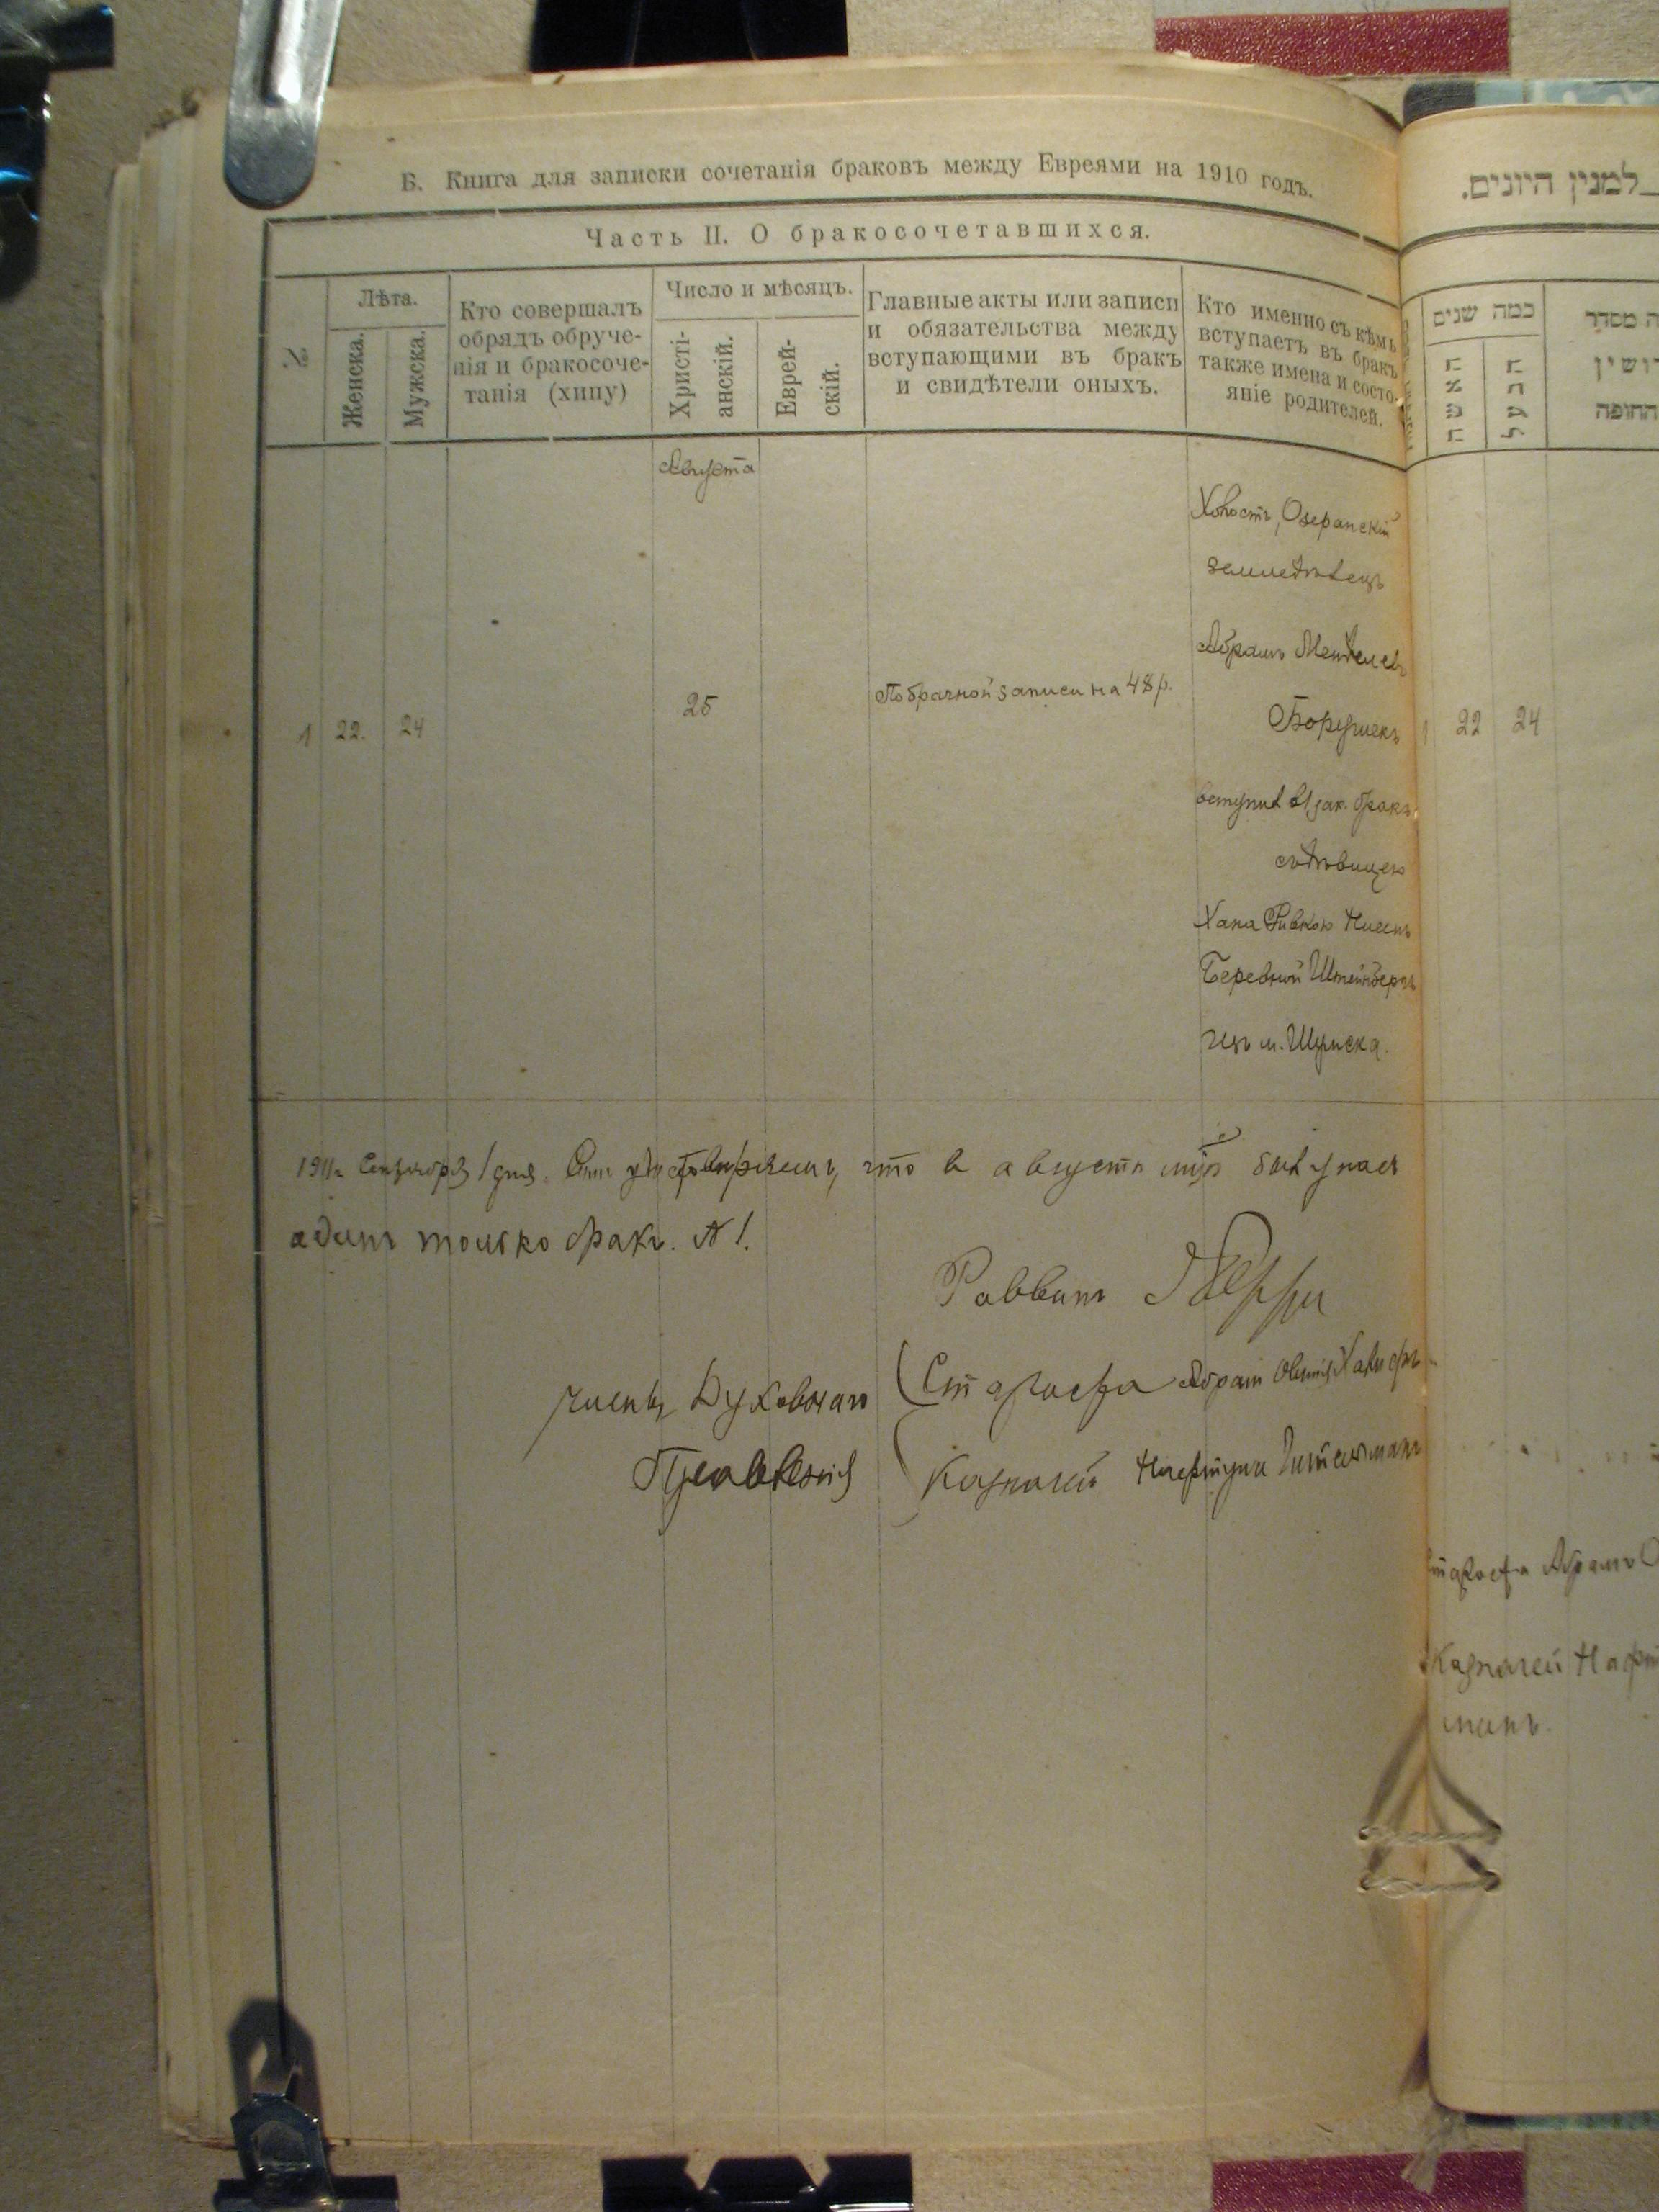 Б. Книга для записки сочетанія браковъ между Евреями на 1910 годъ.
Часть II. О бракосочетавшихся.
№
Лѣта.
Женска.
Мужска.
Кто совершалъ
обрядъ обруче-
нія и бракосоче-
танія (хипу)
Число и мѣсяцъ.
Христі-
анскій.
Еврей-
скій.
Главные акты или записи
и обязательства между
вступающими въ бракъ
и свидѣтели оныхъ.
Кто именно съ кѣмъ
вступаетъ въ бракъ
также имена и состо-
яніе родителей.
Августа
1 22. 24 25 По брачной записи на 48 р.
Холостъ, Озеранскій
земледѣлецъ
Абрамъ Менделевъ
вступил въ зак. бракъ
съ дѣвицею
Хана Ривкою
Беровной Штейнбергъ
изъ м. Шумска.
1911 г. Сентября 1 дня. что в августѣ был у насъ
адинъ только бракъ. № 1.
Раввинъ
Члены Духовнаго
Правленія
Староста Абрам
Казначей Нафтула
למנין היונים.
כמה שנים
האשה
הבעל
מסדר
החופה
1 22 24
Староста Абрамъ
Казначей
манъ.